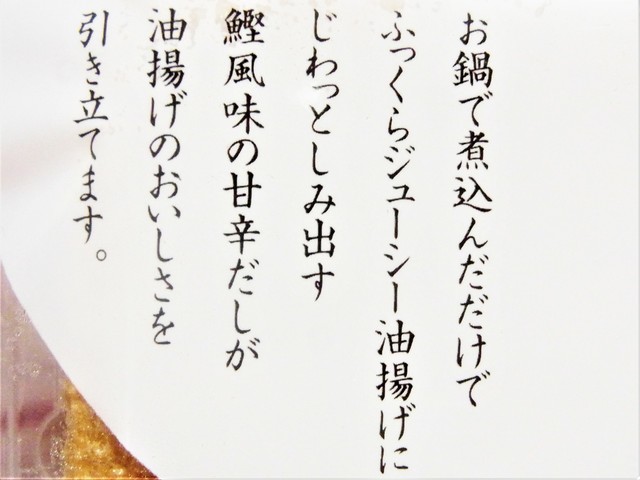 お鍋で煮込んだだけで
ふっくらジューシー油揚げに
じわっとしみ出す
鰹風味の甘辛だしが
油揚げのおいしさを
引き立てます。